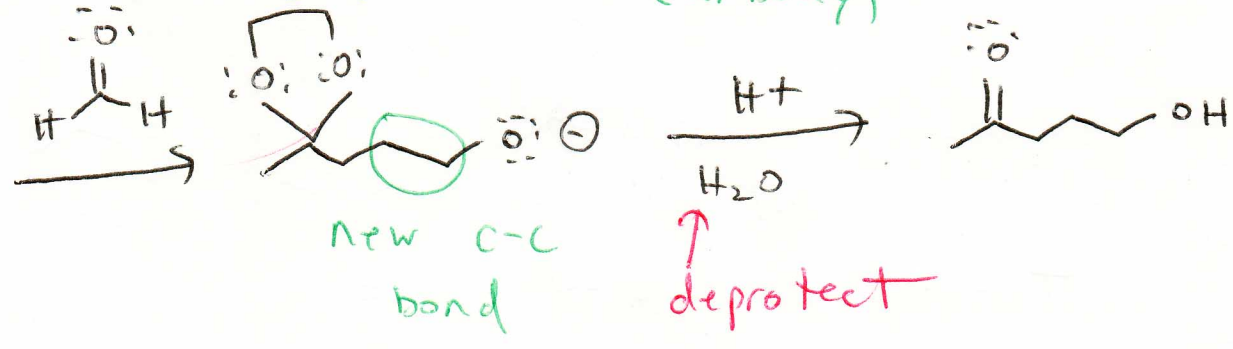 O
H H
O O
O ⊖
H+
H2O
O
OH
new C-C
bond
deprotect